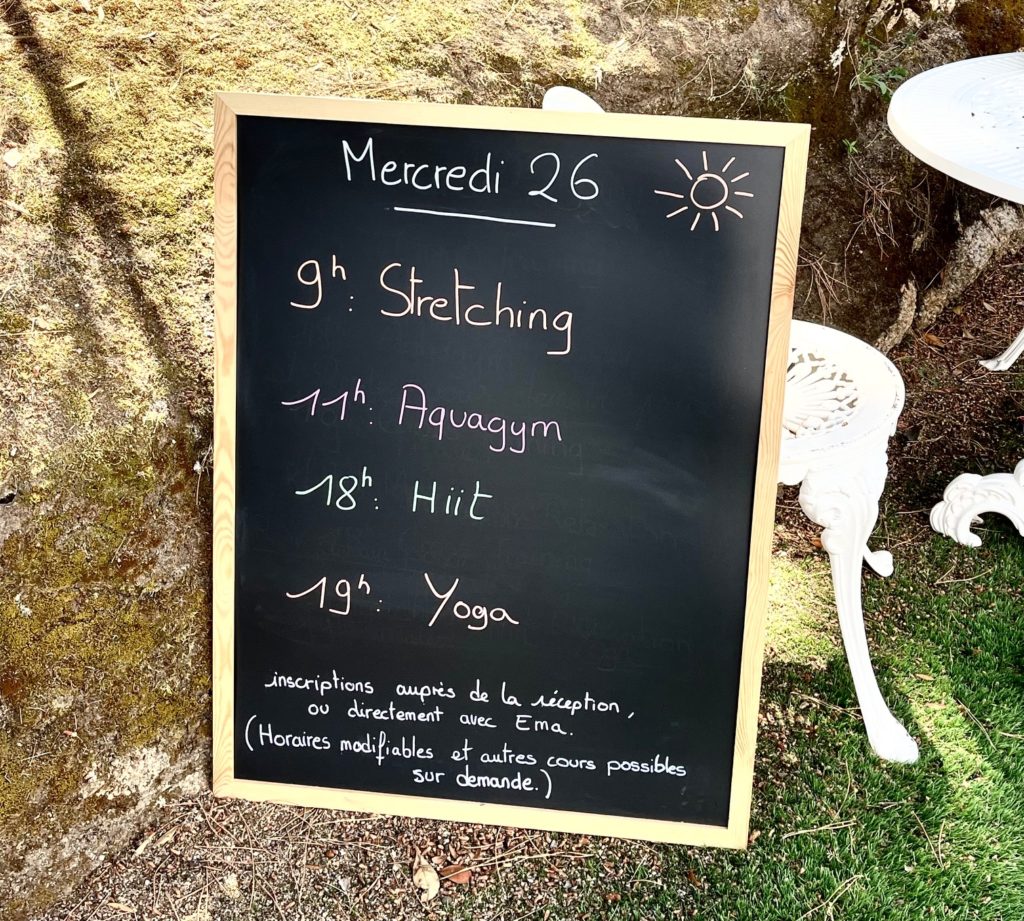 Mercredi 26
9h: Stretching
11h: Aquagym
18h: Hiit
19h: Yoga
inscriptions auprès de la réception,
ou directement avec Ema.
(Horaires modifiables et autres cours possibles
sur demande.)